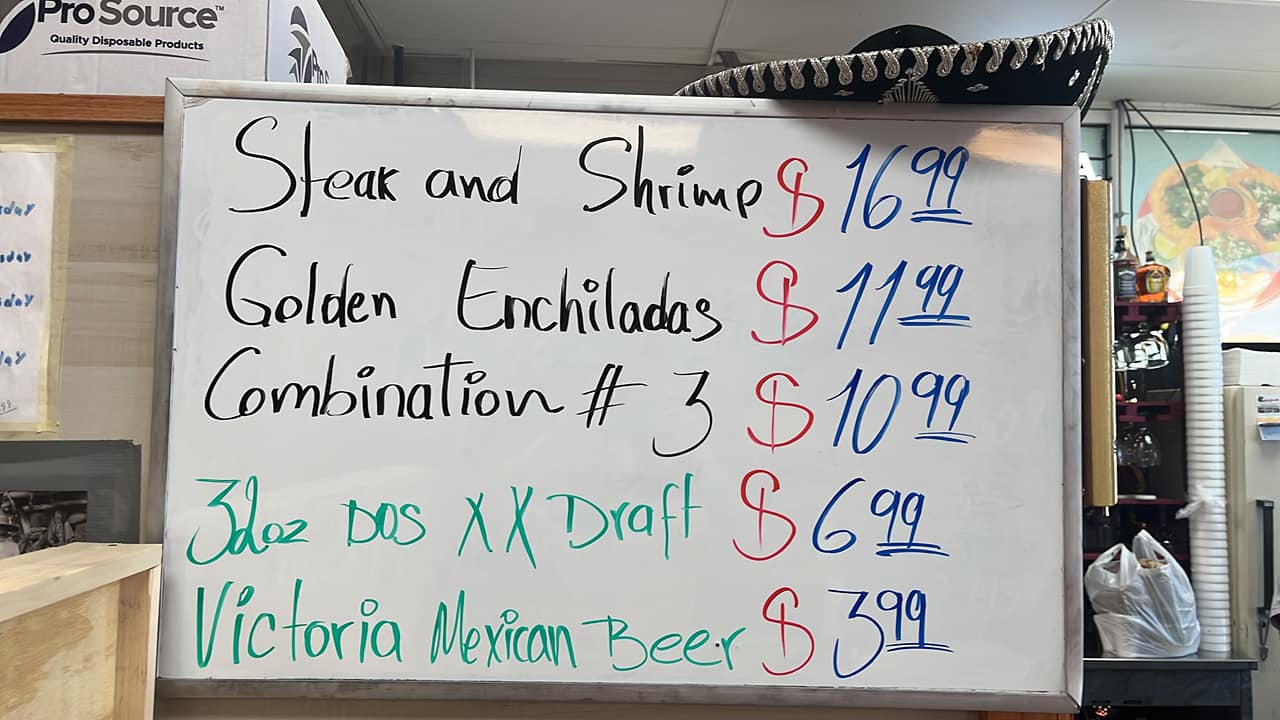 Pro Source™
Quality Disposable Products
Steak and Shrimp $ 16 99
Golden Enchiladas $ 11 99
Combination # 3 $ 10 99
32oz DOS XX Draft $ 6 99
Victoria Mexican Beer $ 3 99